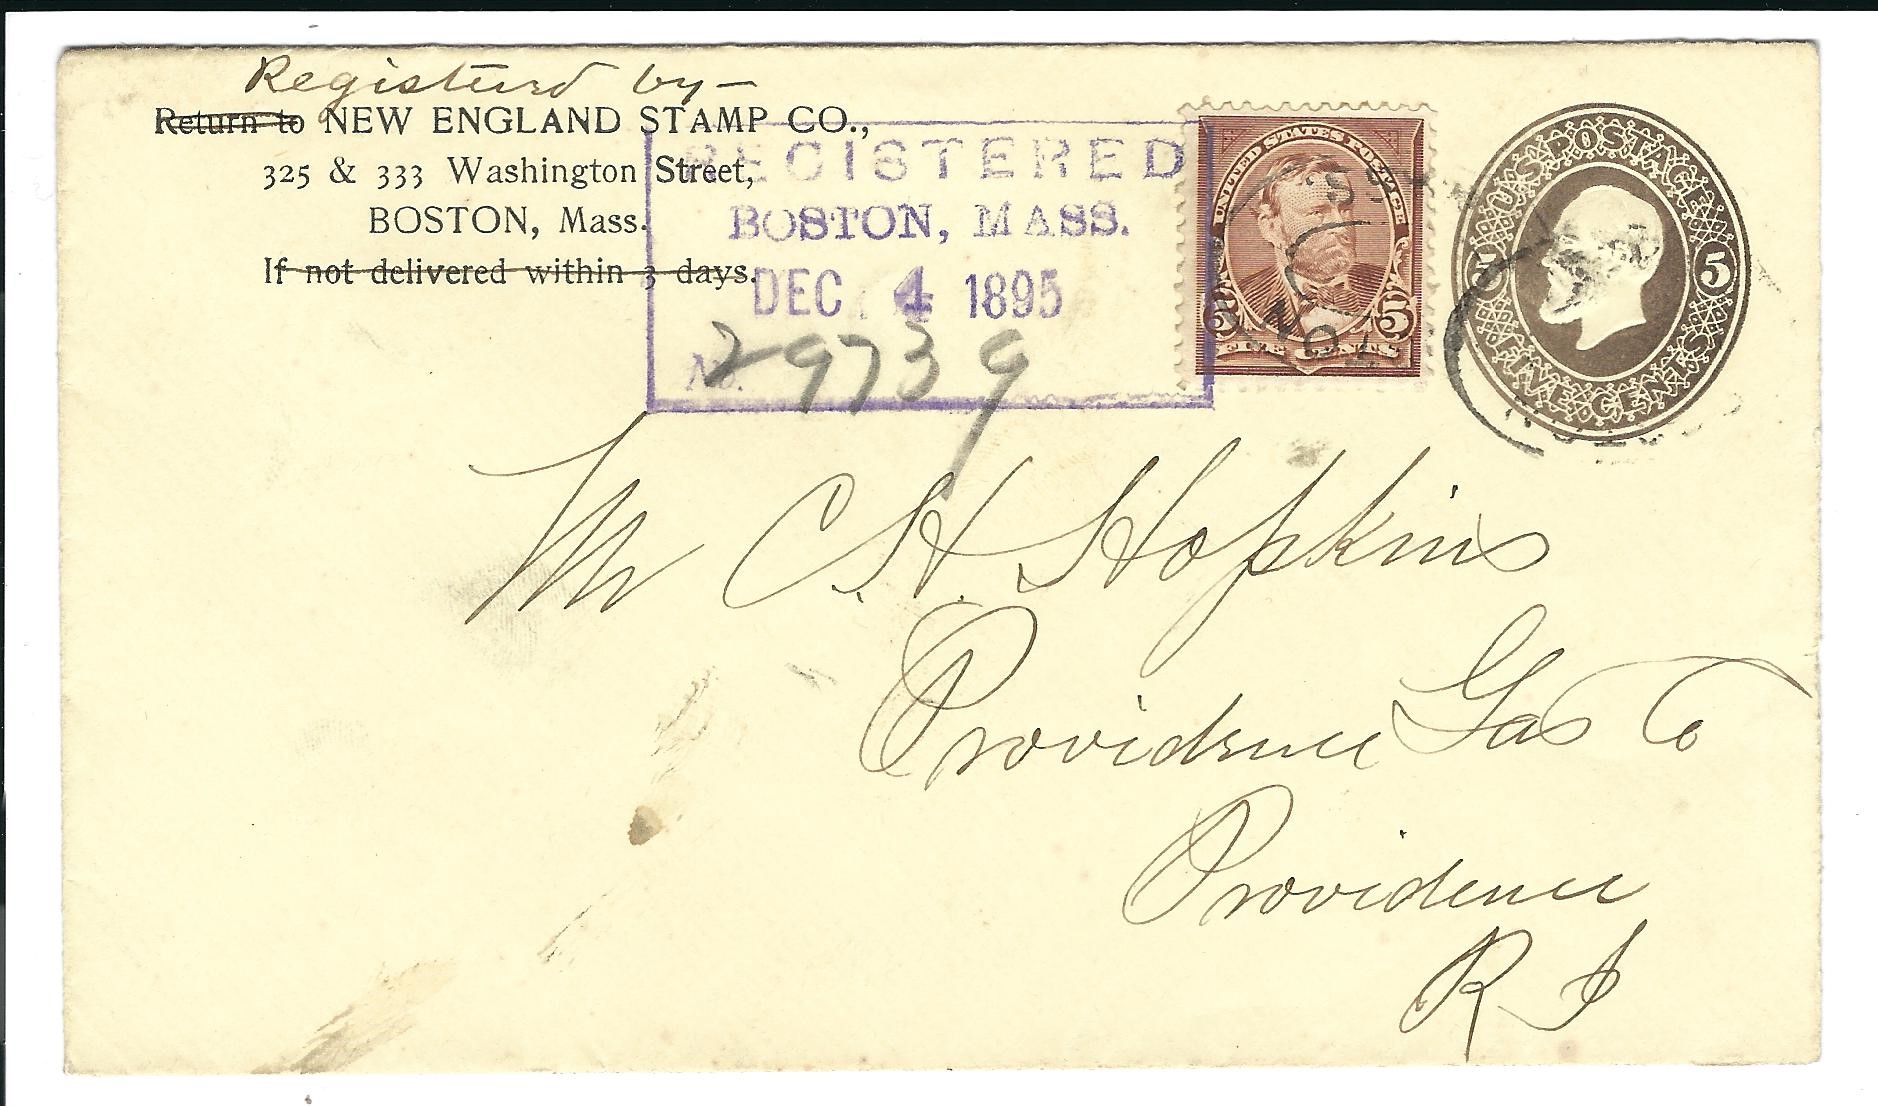 Registered by—
Return to NEW ENGLAND STAMP CO.,
325 & 333 Washington Street,
BOSTON, Mass.
If not delivered within 3 days.
REGISTERED
BOSTON, MASS.
DEC 4 1895
No. 29739
UNITED STATES POSTAGE
5 5
FIVE CENTS
U.S. POSTAGE
5 5
FIVE CENTS
BOSTON
Mr C. H. Hopkins
Providence Gas Co
Providence
R I